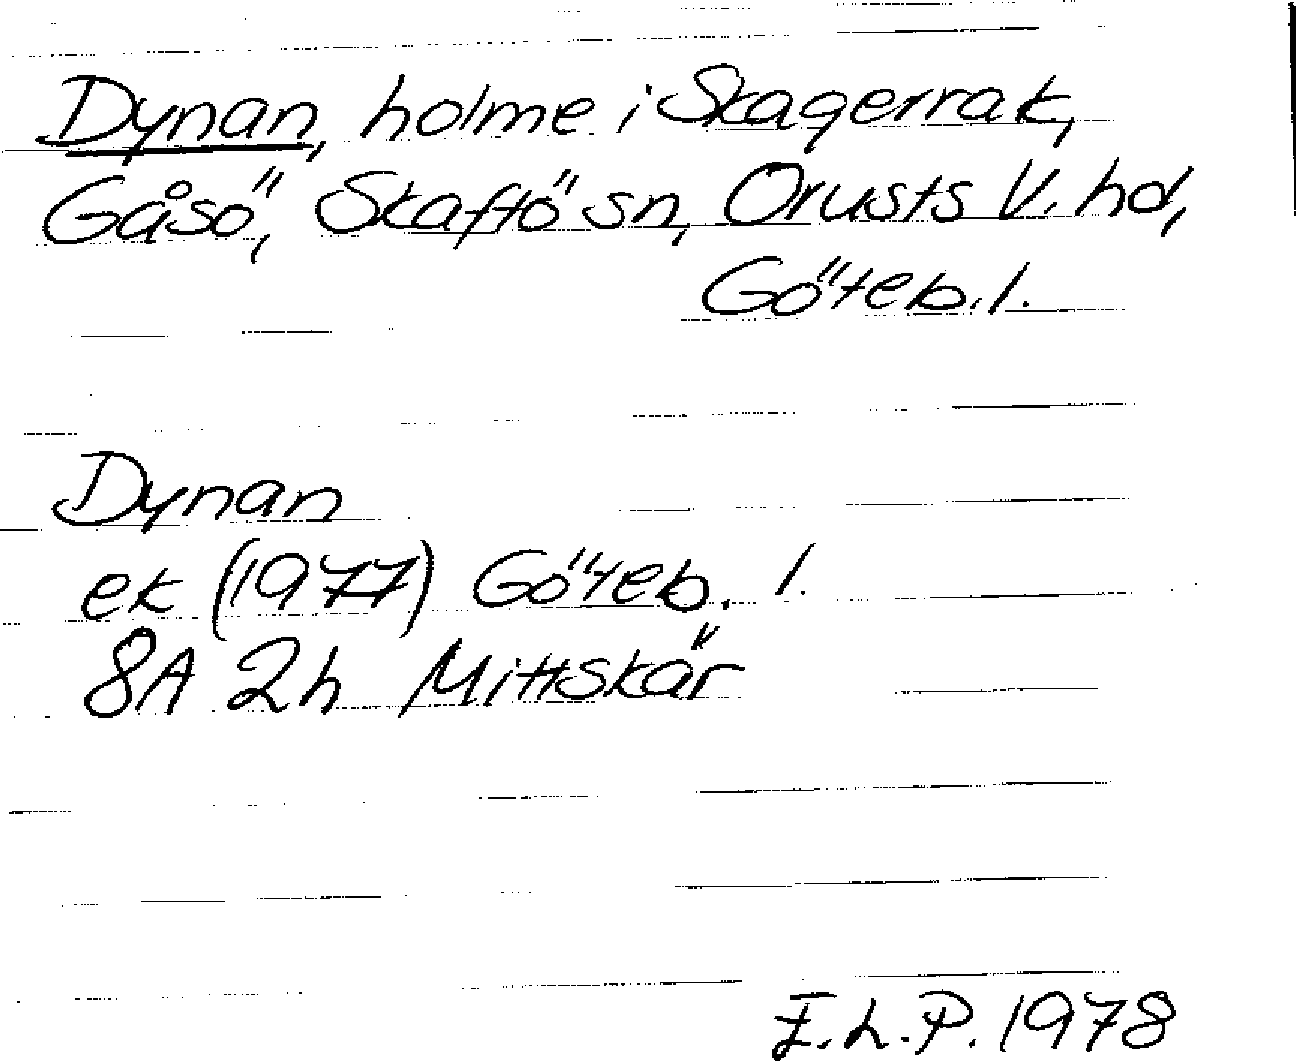 Dynan, holme i Skagerrak,
Gåsö, Skaftö sn, Orusts V. hd,
Göteb. l.
Dynan
ek (1977) Göteb. l.
8A 2h Mittskär
E.L.P. 1978